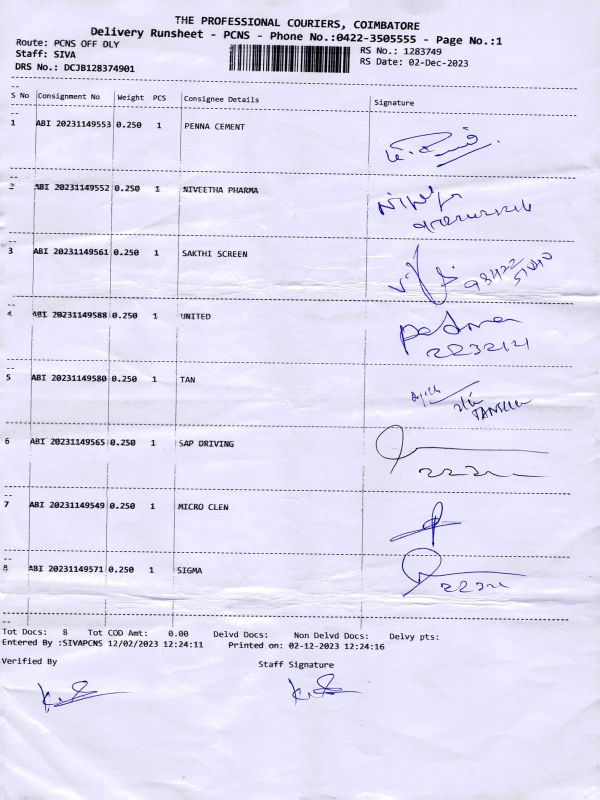 THE PROFESSIONAL COURIERS, COIMBATORE
Delivery Runsheet - PCNS - Phone No.:0422-3505555 - Page No.:1
Route: PCNS OFF DLY
RS No.: 1283749
Staff: SIVA
RS Date: 02-Dec-2023
DRS No.: DCJB128374901
S No Consignment No Weight PCS Consignee Details Signature
1 ABI 20231149553 0.250 1 PENNA CEMENT
2 ABI 20231149552 0.250 1 NIVEETHA PHARMA
3 ABI 20231149561 0.250 1 SAKTHI SCREEN
4 ABI 20231149588 0.250 1 UNITED
Padma
5 ABI 20231149580 0.250 1 TAN
6 ABI 20231149565 0.250 1 SAP DRIVING
7 ABI 20231149549 0.250 1 MICRO CLEN
8 ABI 20231149571 0.250 1 SIGMA
Tot Docs: 8 Tot COD Amt: 0.00 Delvd Docs: Non Delvd Docs: Delvy pts:
Entered By :SIVAPCNS 12/02/2023 12:24:11 Printed on: 02-12-2023 12:24:16
Verified By Staff Signature